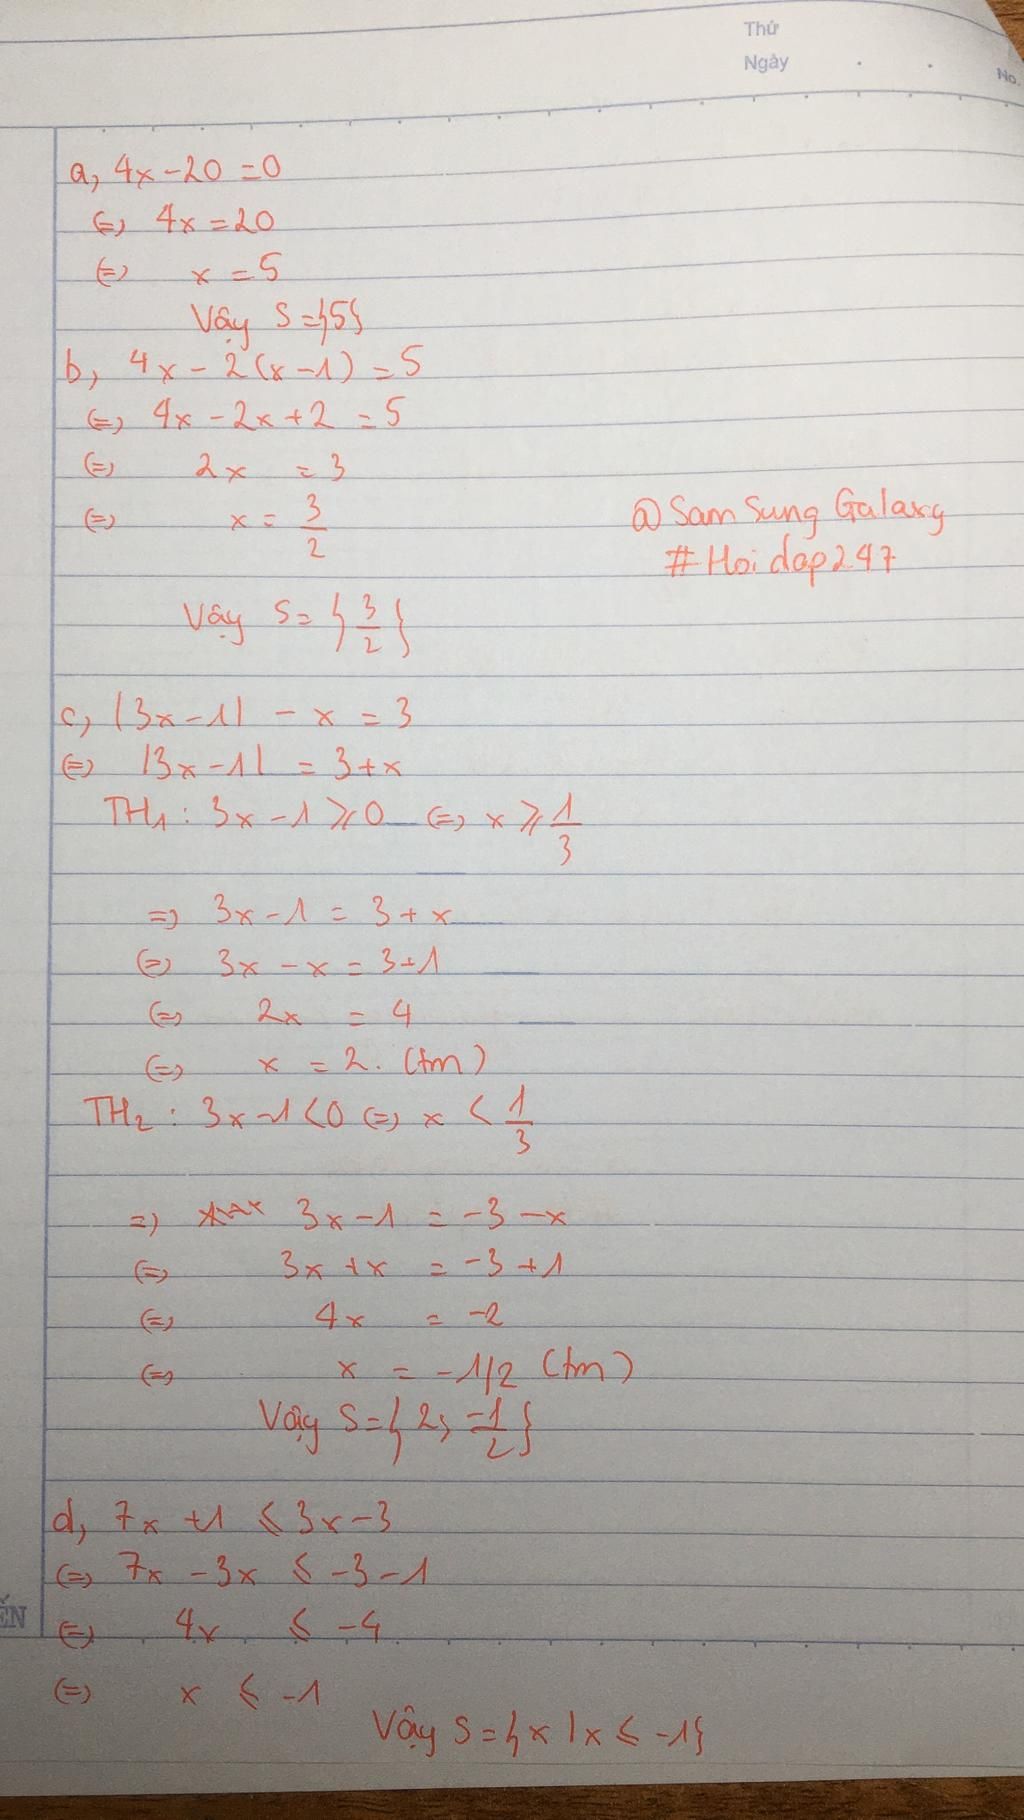 Thứ
Ngày
No.
a, 4x - 20 = 0
(=) 4x = 20
(=) x = 5
Vậy S = {5}
b, 4x - 2(x - 1) = 5
(=) 4x - 2x + 2 = 5
(=) 2x = 3
(=) x = 3/2
@SamSung Galaxy
#Hoidap247
Vậy S = {3/2}
c, |3x - 1| - x = 3
(=) |3x - 1| = 3 + x
TH1 : 3x - 1 ⩾ 0 (=) x ⩾ 1/3
=) 3x - 1 = 3 + x
(=) 3x - x = 3 + 1
(=) 2x = 4
(=) x = 2. (tm)
TH2 : 3x - 1 < 0 (=) x < 1/3
=) 3x - 1 = -3 - x
(=) 3x + x = -3 + 1
(=) 4x = -2
(=) x = -1/2 (tm)
Vậy S = {2, -1/2}
d, 7x + 1 ⩽ 3x - 3
(=) 7x - 3x ⩽ -3 - 1
(=) 4x ⩽ -4
(=) x ⩽ -1
Vậy S = {x | x ⩽ -1}